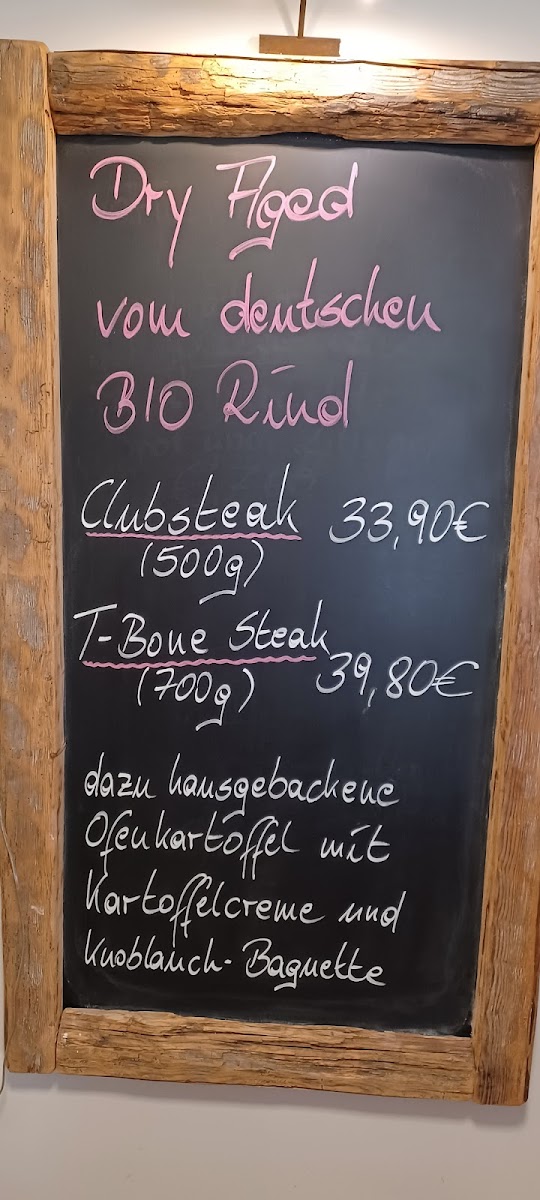 Dry Aged
vom deutschen
BIO Rind
Clubsteak 33,90€
(500g)
T-Bone Steak
(700g) 39,80€
dazu hausgebackene
Ofenkartoffel mit
Kartoffelcreme und
Knoblauch-Baguette